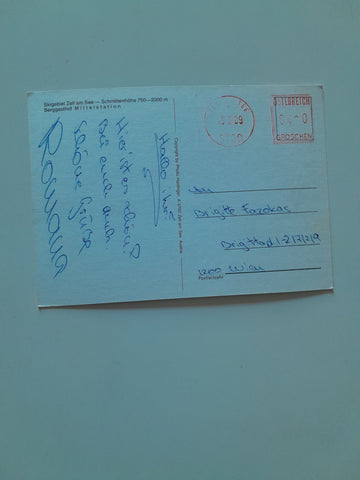 Skigebiet Zell am See — Schmittenhöhe 750—2000 m
Berggasthof Mittelstation
Hallo Ihr!
Hier ist es schön!
Bei euch auch
Schöne Grüße
Romana
Copyright by Photo A-5700 Zell am See, Austria
ÖSTERREICH
GROSCHEN
An
Brigitte Fazekas
1200 Wien
Postleitzahl